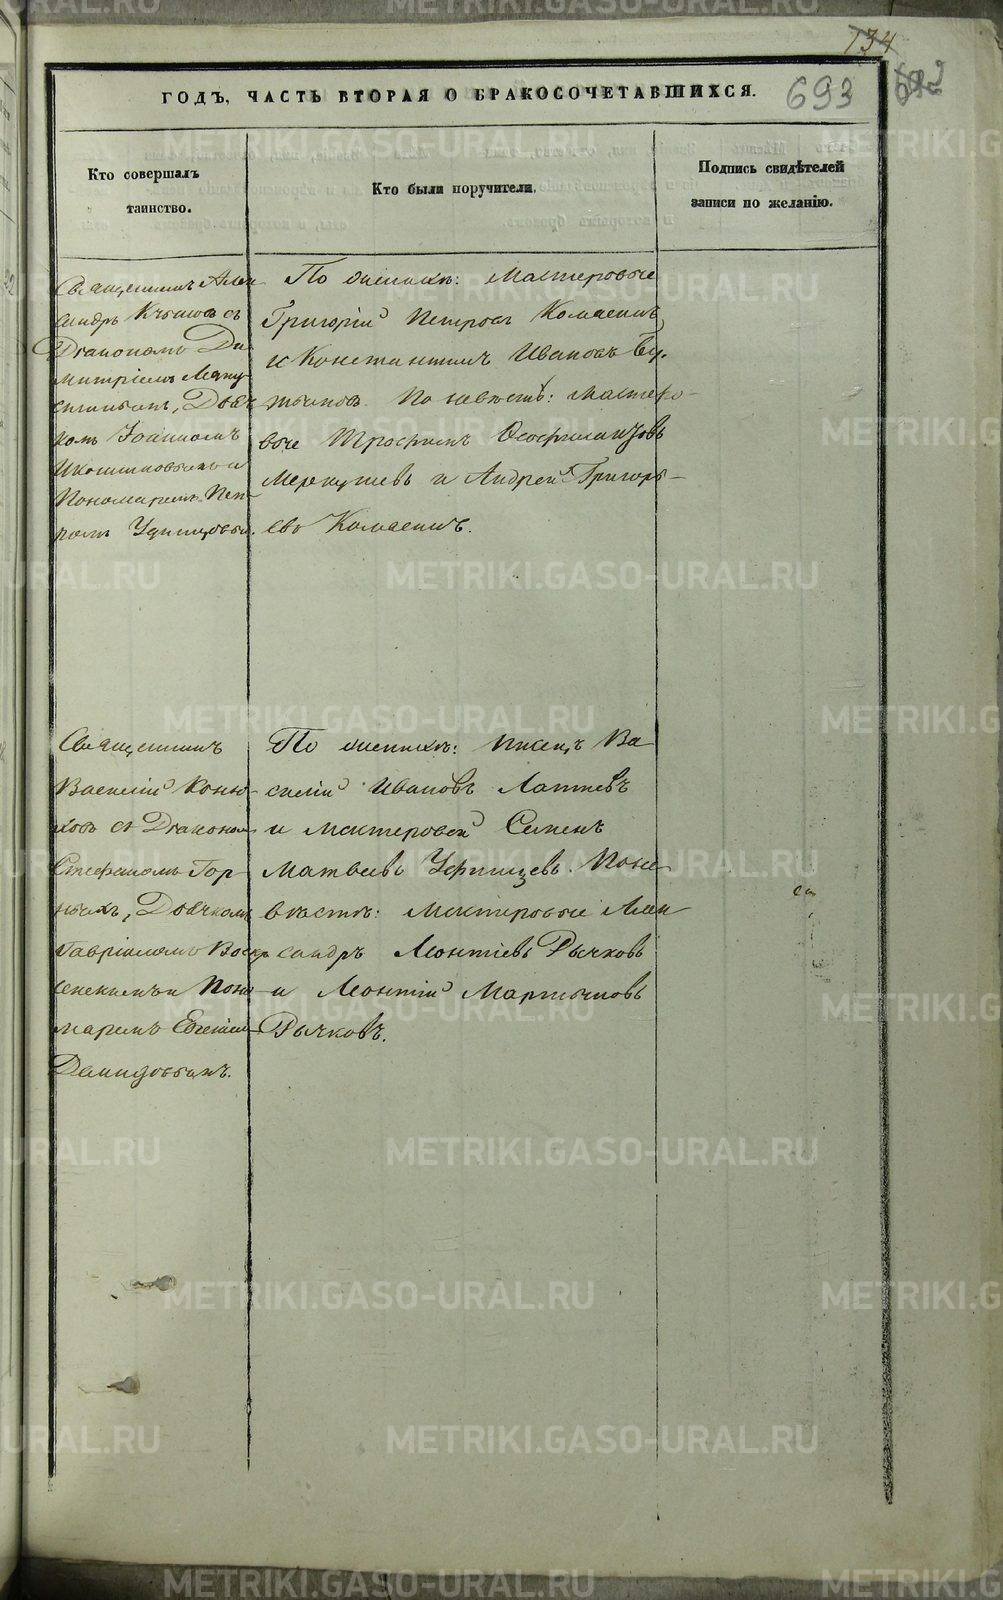 134
693
ГОДЪ, ЧАСТЬ ВТОРАЯ О БРАКОСОЧЕТАВШИХСЯ.
Кто совершалъ
таинство.
Кто были поручители.
Подпись свидѣтелей
записи по желанію.
Священникъ Алек
сандръ съ
Діакономъ Ди
митріемъ
Дьяч
комъ Іоанномъ
Икошниковымъ и
Пономаремъ Пет
ромъ Удинцовым.
По женихѣ: Мастеровые
Григорій Петровъ Комаевихъ
и Константинъ Ивановъ
По невѣстѣ: мастеро-
вые Трофимъ Феофилактовъ
Меркушевъ и Андрей Григорь-
евъ Комаевихъ.
Священникъ
Василій Коню-
ховъ съ Діакономъ
Стефаномъ Гор-
ныхъ, Дьячкомъ
Гавріиломъ Воскр
сенскимъ и Поно
маремъ Евгеніем
Демидовымъ.
По женихѣ: писецъ Ва
силій Ивановъ Лаптевъ
и мастеровой Семенъ
Матвеевъ Уфимцевъ. По не-
вѣстѣ: мастеровые Алек
сандръ Леонтіевъ Рычковъ
и Леонтій Мартыновъ
Рычковъ.
METRIKI.GASO-URAL.RU